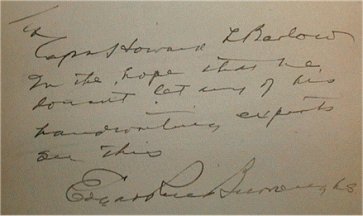 To
Capt Howard L Barlow
In the hope that he
doesnt let any of his
handwriting experts
see this
Edgar Rice Burroughs